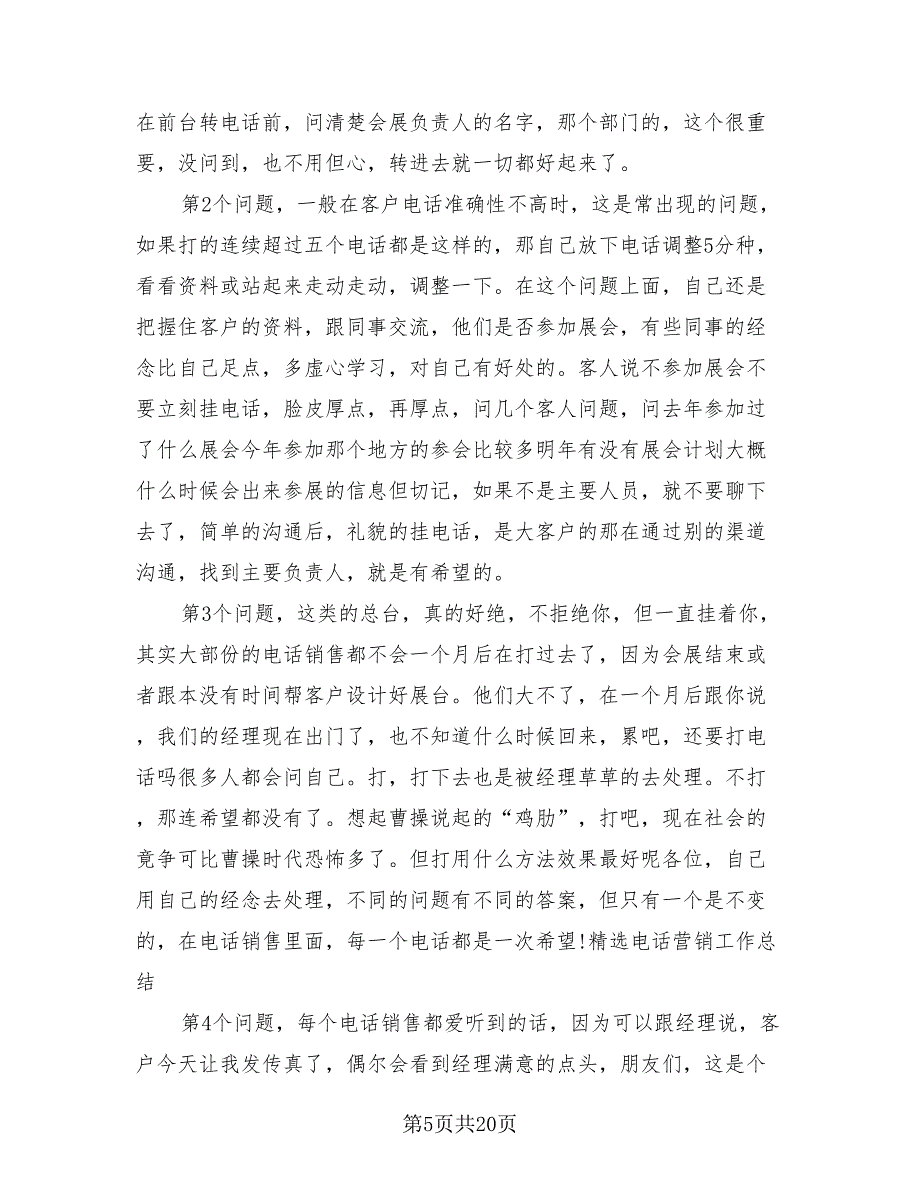 在前台转电话前，问清楚会展负责人的名字，那个部门的，这个很重
要，没问到，也不用但心，转进去就一切都好起来了。
第2个问题，一般在客户电话准确性不高时，这是常出现的问题，
如果打的连续超过五个电话都是这样的，那自己放下电话调整5分种，
看看资料或站起来走动走动，调整一下。在这个问题上面，自己还是
把握住客户的资料，跟同事交流，他们是否参加展会，有些同事的经
念比自己足点，多虚心学习，对自己有好处的。客人说不参加展会不
要立刻挂电话，脸皮厚点，再厚点，问几个客人问题，问去年参加过
了什么展会今年参加那个地方的参会比较多明年有没有展会计划大概
什么时候会出来参展的信息但切记，如果不是主要人员，就不要聊下
去了，简单的沟通后，礼貌的挂电话，是大客户的那在通过别的渠道
沟通，找到主要负责人，就是有希望的。
第3个问题，这类的总台，真的好绝，不拒绝你，但一直挂着你，
其实大部份的电话销售都不会一个月后在打过去了，因为会展结束或
者跟本没有时间帮客户设计好展台。他们大不了，在一个月后跟你说
，我们的经理现在出门了，也不知道什么时候回来，累吧，还要打电
话吗很多人都会问自己。打，打下去也是被经理草草的去处理。不打
，那连希望都没有了。想起曹操说起的“鸡肋”，打吧，现在社会的
竟争可比曹操时代恐怖多了。但打用什么方法效果最好呢各位，自己
用自己的经念去处理，不同的问题有不同的答案，但只有一个是不变
的，在电话销售里面，每一个电话都是一次希望!精选电话营销工作总
结
第4个问题，每个电话销售都爱听到的话，因为可以跟经理说，客
户今天让我发传真了，偶尔会看到经理满意的点头，朋友们，这是个
第5页共20页